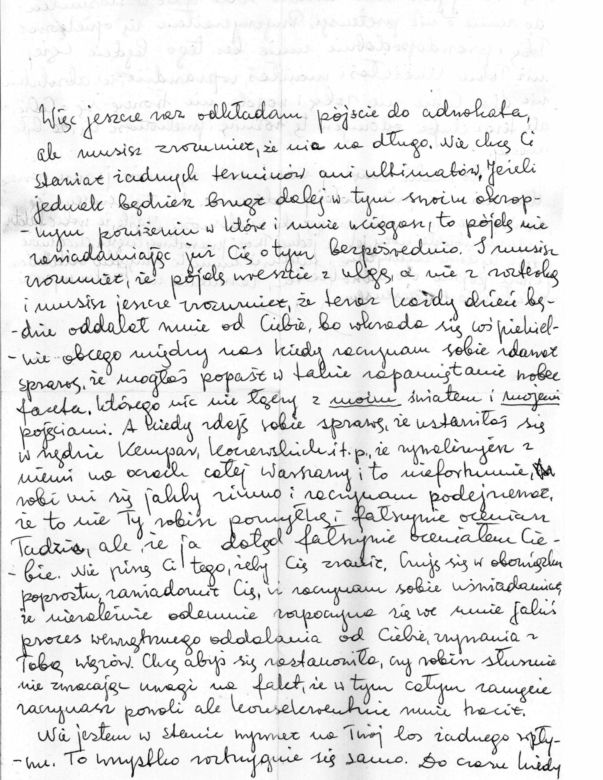 Więc jeszcze raz odkładam pójście do adwokata,
ale musisz zrozumieć, że nie na długo. Nie chcę Ci
stawiać żadnych terminów ani ultimatów. Jeżeli
jednak będziesz brnąć dalej w tym swoim okrop-
-nym poniżeniu w które i mnie wciągasz, to pójdę nie
zawiadamiając już Cię o tym bezpośrednio. I musisz
zrozumieć, że pójdę wreszcie z ulgą, a nie z rozterką
i musisz jeszcze zrozumieć, że teraz każdy dzień bę-
-dzie oddalał mnie od Ciebie, bo wkrada się coś piekiel-
-nie obcego między nas kiedy zaczynam sobie zdawać
sprawę, że mogłaś popaść w takie zapamiętanie wobec
faceta, którego nic nie łączy z moim światem i moimi
pojęciami. A kiedy zdaję sobie sprawę, że ustawiłaś się
w rzędzie Kempar, i.t.p., że rywalizujesz z
niemi na oczach całej Warszawy i to niefortunnie,
robi mi się jakby zimno i zaczynam podejrzewać,
że to nie Ty robisz pomyłkę i fałszywie oceniasz
Tadzia, ale że ja dotąd fałszywie oceniałem Cie-
-bie. Nie piszę Ci tego, żeby Cię zranić. Czuję się w obowiązku
poprostu zawiadomić Cię, iż zaczynam sobie uświadamiać
że niezależnie odemnie rozpoczyna się we mnie jakiś
proces wewnętrznego oddalania od Ciebie, zrywania z
Tobą więzów. Chcę abyś się zastanowiła, czy robisz słusznie
nie zwracając uwagi na fakt, że w tym całym zamęcie
zaczynasz powoli ale konsekwentnie mnie tracić.
Nie jestem w stanie wywrzeć na Twój los żadnego wpły-
-wu. To wszystko rozstrzygnie się samo. Do czasu kiedy